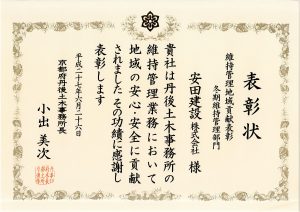 表彰状
維持管理地域貢献表彰
冬期維持管理部門
安田建設株式会社 様
貴社は丹後土木事務所の
維持管理業務において
地域の安心・安全に貢献
されました その功績に感謝し
表彰します
平成二十七年六月二十六日
京都府丹後土木事務所長
小出 美次